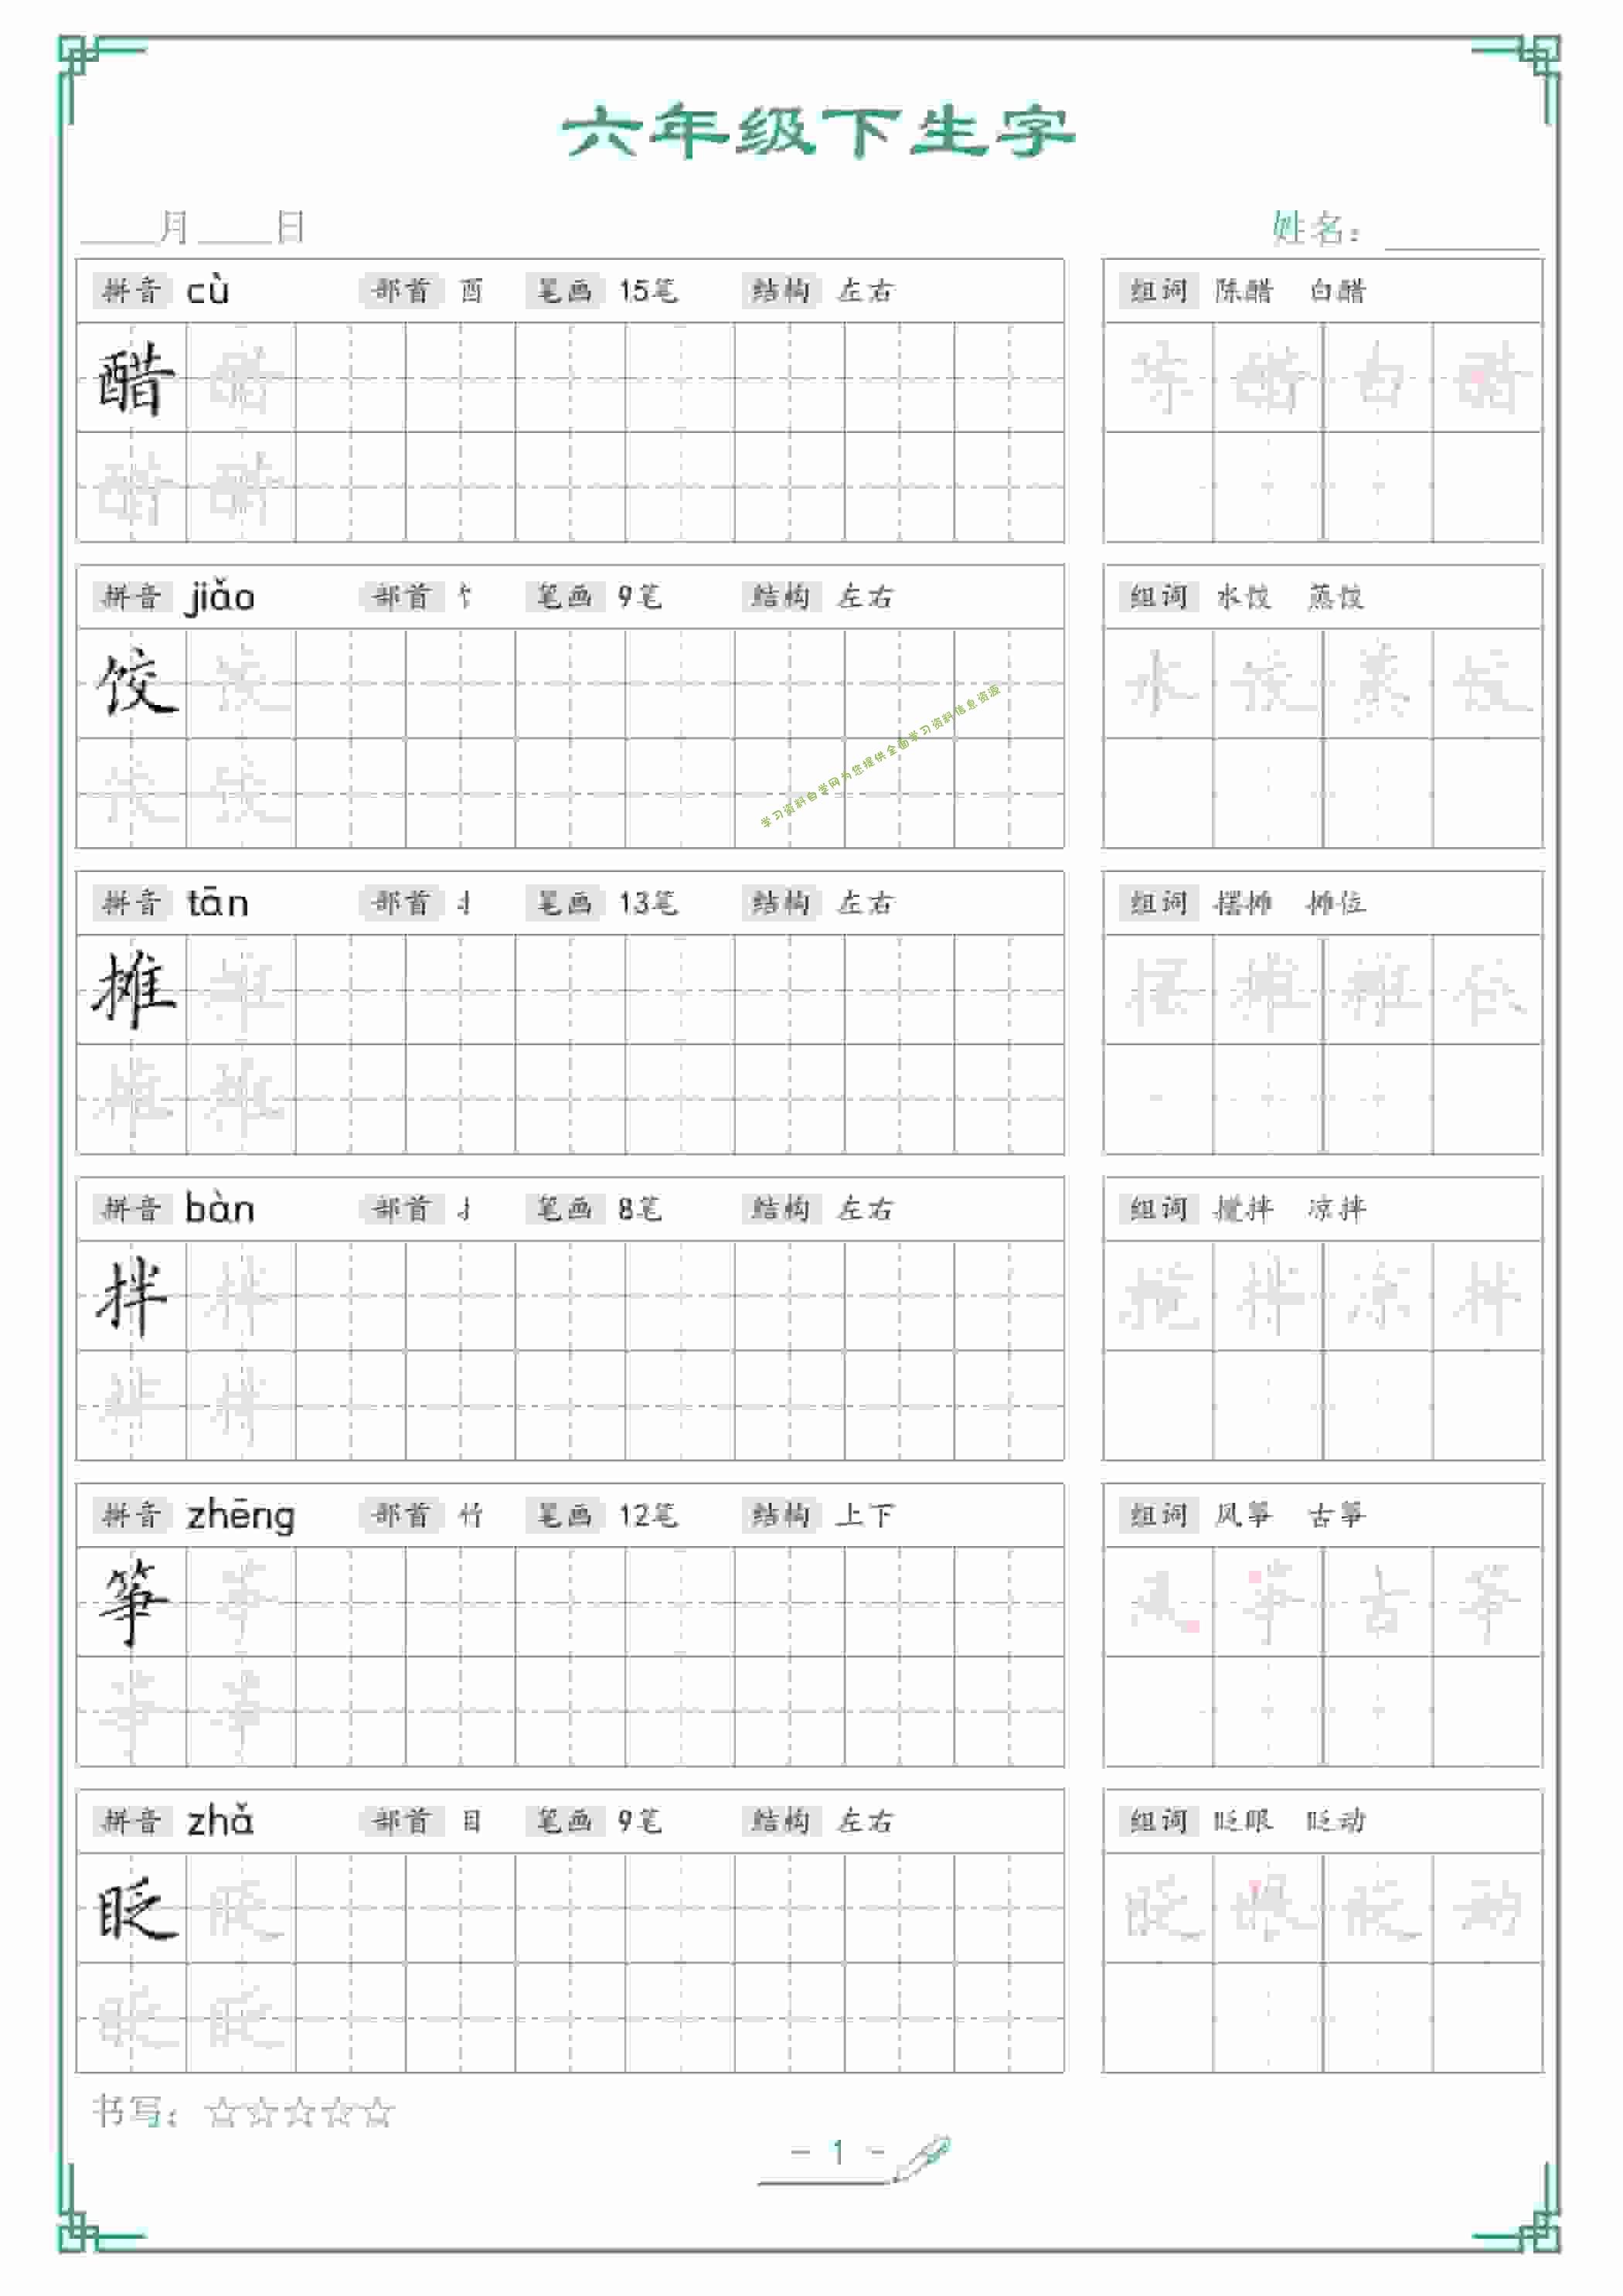 六年级下生字
月 日 姓名：
拼音 cù 部首 酉 笔画 15笔 结构 左右 组词 陈醋 白醋
醋 醋 陈 醋 白 醋
醋 醋
拼音 jiǎo 部首 饣 笔画 9笔 结构 左右 组词 水饺 蒸饺
饺 饺 水 饺 蒸 饺
饺 饺
学习资料自学网为您提供全面学习资料信息资源
拼音 tān 部首 扌 笔画 13笔 结构 左右 组词 摆摊 摊位
摊 摊 摆 摊 摊 位
摊 摊
拼音 bàn 部首 扌 笔画 8笔 结构 左右 组词 搅拌 凉拌
拌 拌 搅 拌 凉 拌
拌 拌
拼音 zhēng 部首 竹 笔画 12笔 结构 上下 组词 风筝 古筝
筝 筝 风 筝 古 筝
筝 筝
拼音 zhǎ 部首 目 笔画 9笔 结构 左右 组词 眨眼 眨动
眨 眨 眨 眼 眨 动
眨 眨
书写：☆☆☆☆☆
- 1 -